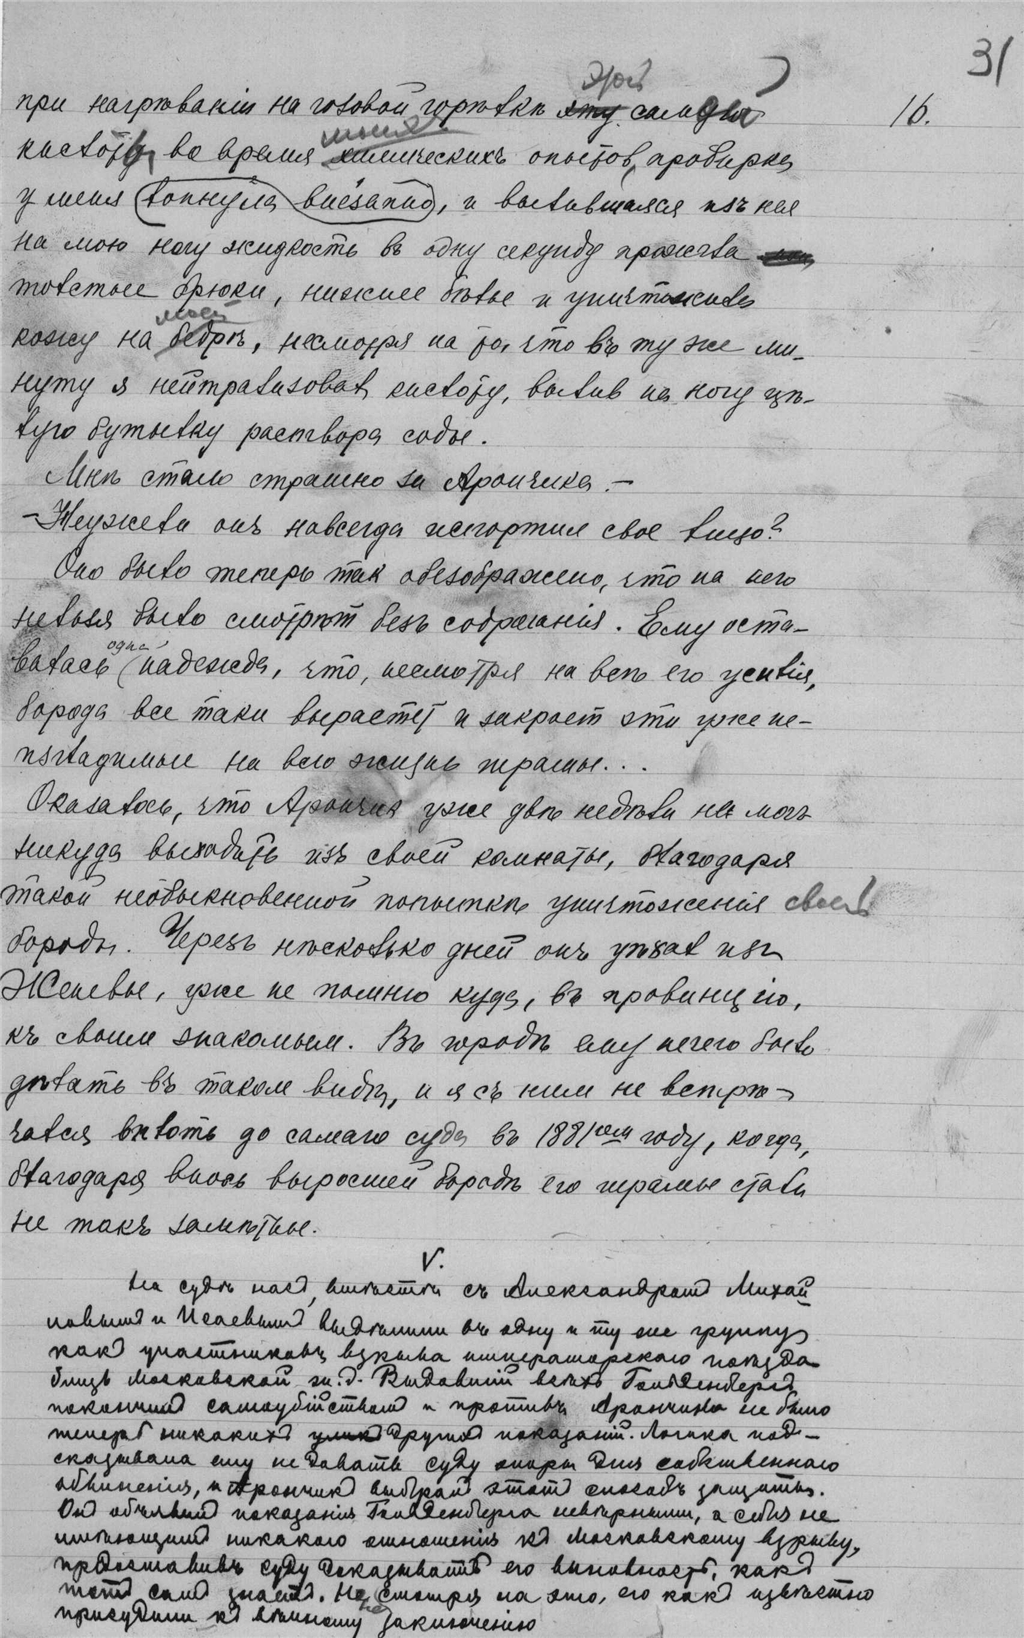 31
16.
при нагрѣваніи на газовой горѣлкѣ этой самой
кислоты во время моихъ химическихъ опытов, пробирка
у меня лопнула внезапно, и вылившаяся изъ нея
на мою ногу жидкость въ одну секунду прожгла
толстые брюки, нижнее бѣлье и уничтожила
кожу на моей бедрѣ, несмотря на то, что въ ту же ми-
нуту я нейтрализовал кислоту, вылив на ногу цѣ-
лую бутылку раствора соды.
Мнѣ стало страшно за Арончика.-
-Неужели онъ навсегда испортил свое лицо?
Оно было теперь так обезображено, что на него
нельзя было смотрѣть безъ содроганія. Ему оста-
валась одна надежда, что, несмотря на всѣ его усилія,
борода все таки вырастет и закроет эти уже не-
изгладимые на всю жизнь шрамы...
Оказалось, что Арончик уже двѣ недѣли не могъ
никуда выходить изъ своей комнаты, благодаря
такой необыкновенной попыткѣ уничтоженія своей
бороды. Черезъ нѣсколько дней онъ уѣхал изъ
Женевы, уже не помню куда, въ провинцію,
къ своим знакомым. Въ городѣ ему нечего было
дѣлать въ таком видѣ, и я съ ним не встрѣ-
чался вплоть до самаго суда въ 1881ом году, когда,
благодаря вновь выросшей бородѣ его шрамы стали
не такъ замѣтны.
V.
На судѣ насъ, вмѣстѣ съ Александромъ Михай-
ловымъ и Исаевымъ выдѣлили въ одну и ту же группу
какъ участниковъ взрыва императорскаго поѣзда
близь Московской ж.д. Выдавшій всѣхъ Гольденбергъ
покончилъ самоубійствомъ и противъ Арончика не было
теперь никакихъ улик другихъ показаній. Логика под-
сказывала ему не давать суду опоры для собственнаго
обвиненія, и Арончикъ выбралъ этотъ способъ защиты.
Онъ объявилъ показанія Гольденберга невѣрными, а себя не
имѣющимъ никакого отношенія къ Московскому взрыву,
предоставивъ суду доказывать его виновность, какъ
тотъ самъ знаетъ. Не смотря на это, его какъ извѣстно
присудили къ вѣчному заключенію